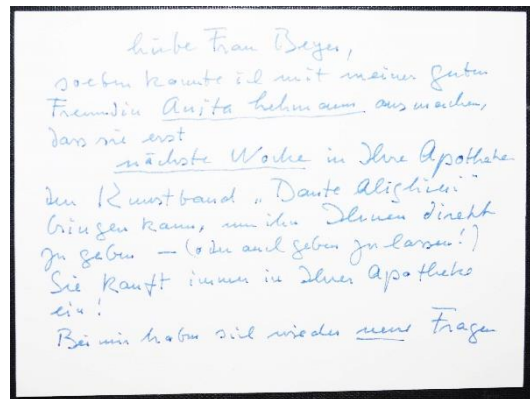 Liebe Frau Beyer,
soeben konnte ich mit meiner guten
Freundin Anita Lehmann ausmachen,
dass sie erst
nächste Woche in Ihre Apotheke
den Kunstband „Dante Alighieri"
bringen kann, um ihn Ihnen direkt
zu geben – (oder auch geben zu lassen!)
Sie kauft immer in Ihrer Apotheke
ein!
Bei mir haben sich wieder neue Fragen